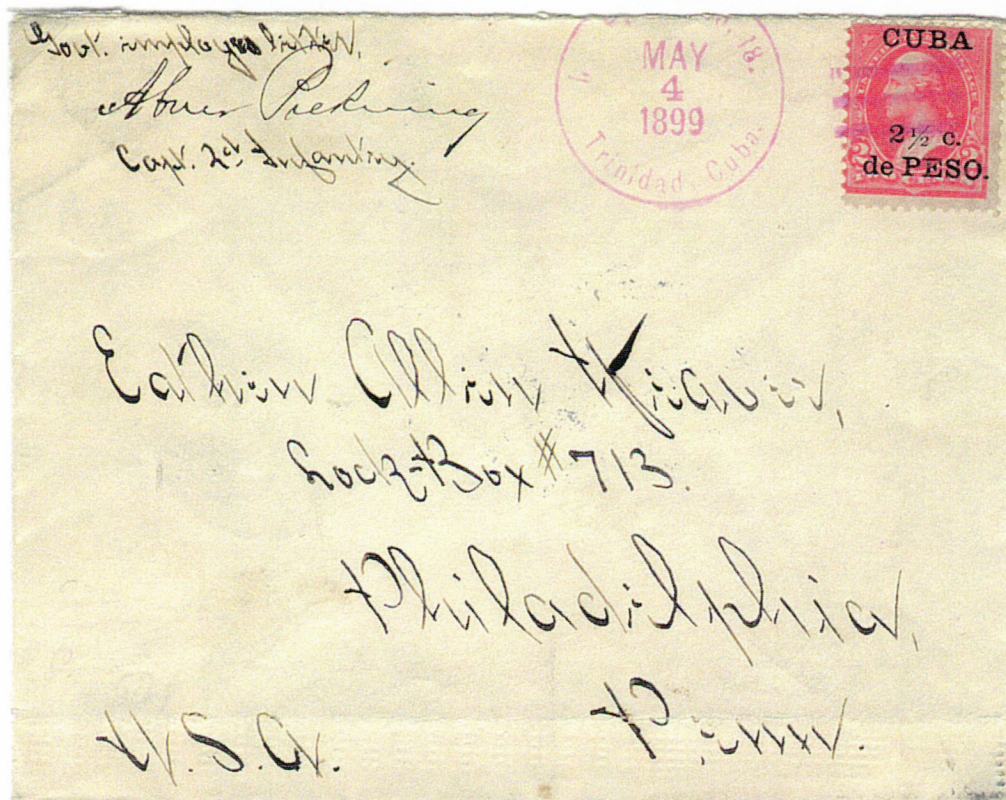 Govt. employes letter,
Abner Pickering
Capt. 2d Infantry.
18.
MAY
4
1899
1
Trinidad, Cuba.
CUBA
2½ c.
de PESO.
Allen
Lock-Box #713.
Philadelphia,
U.S.A.
Penn.